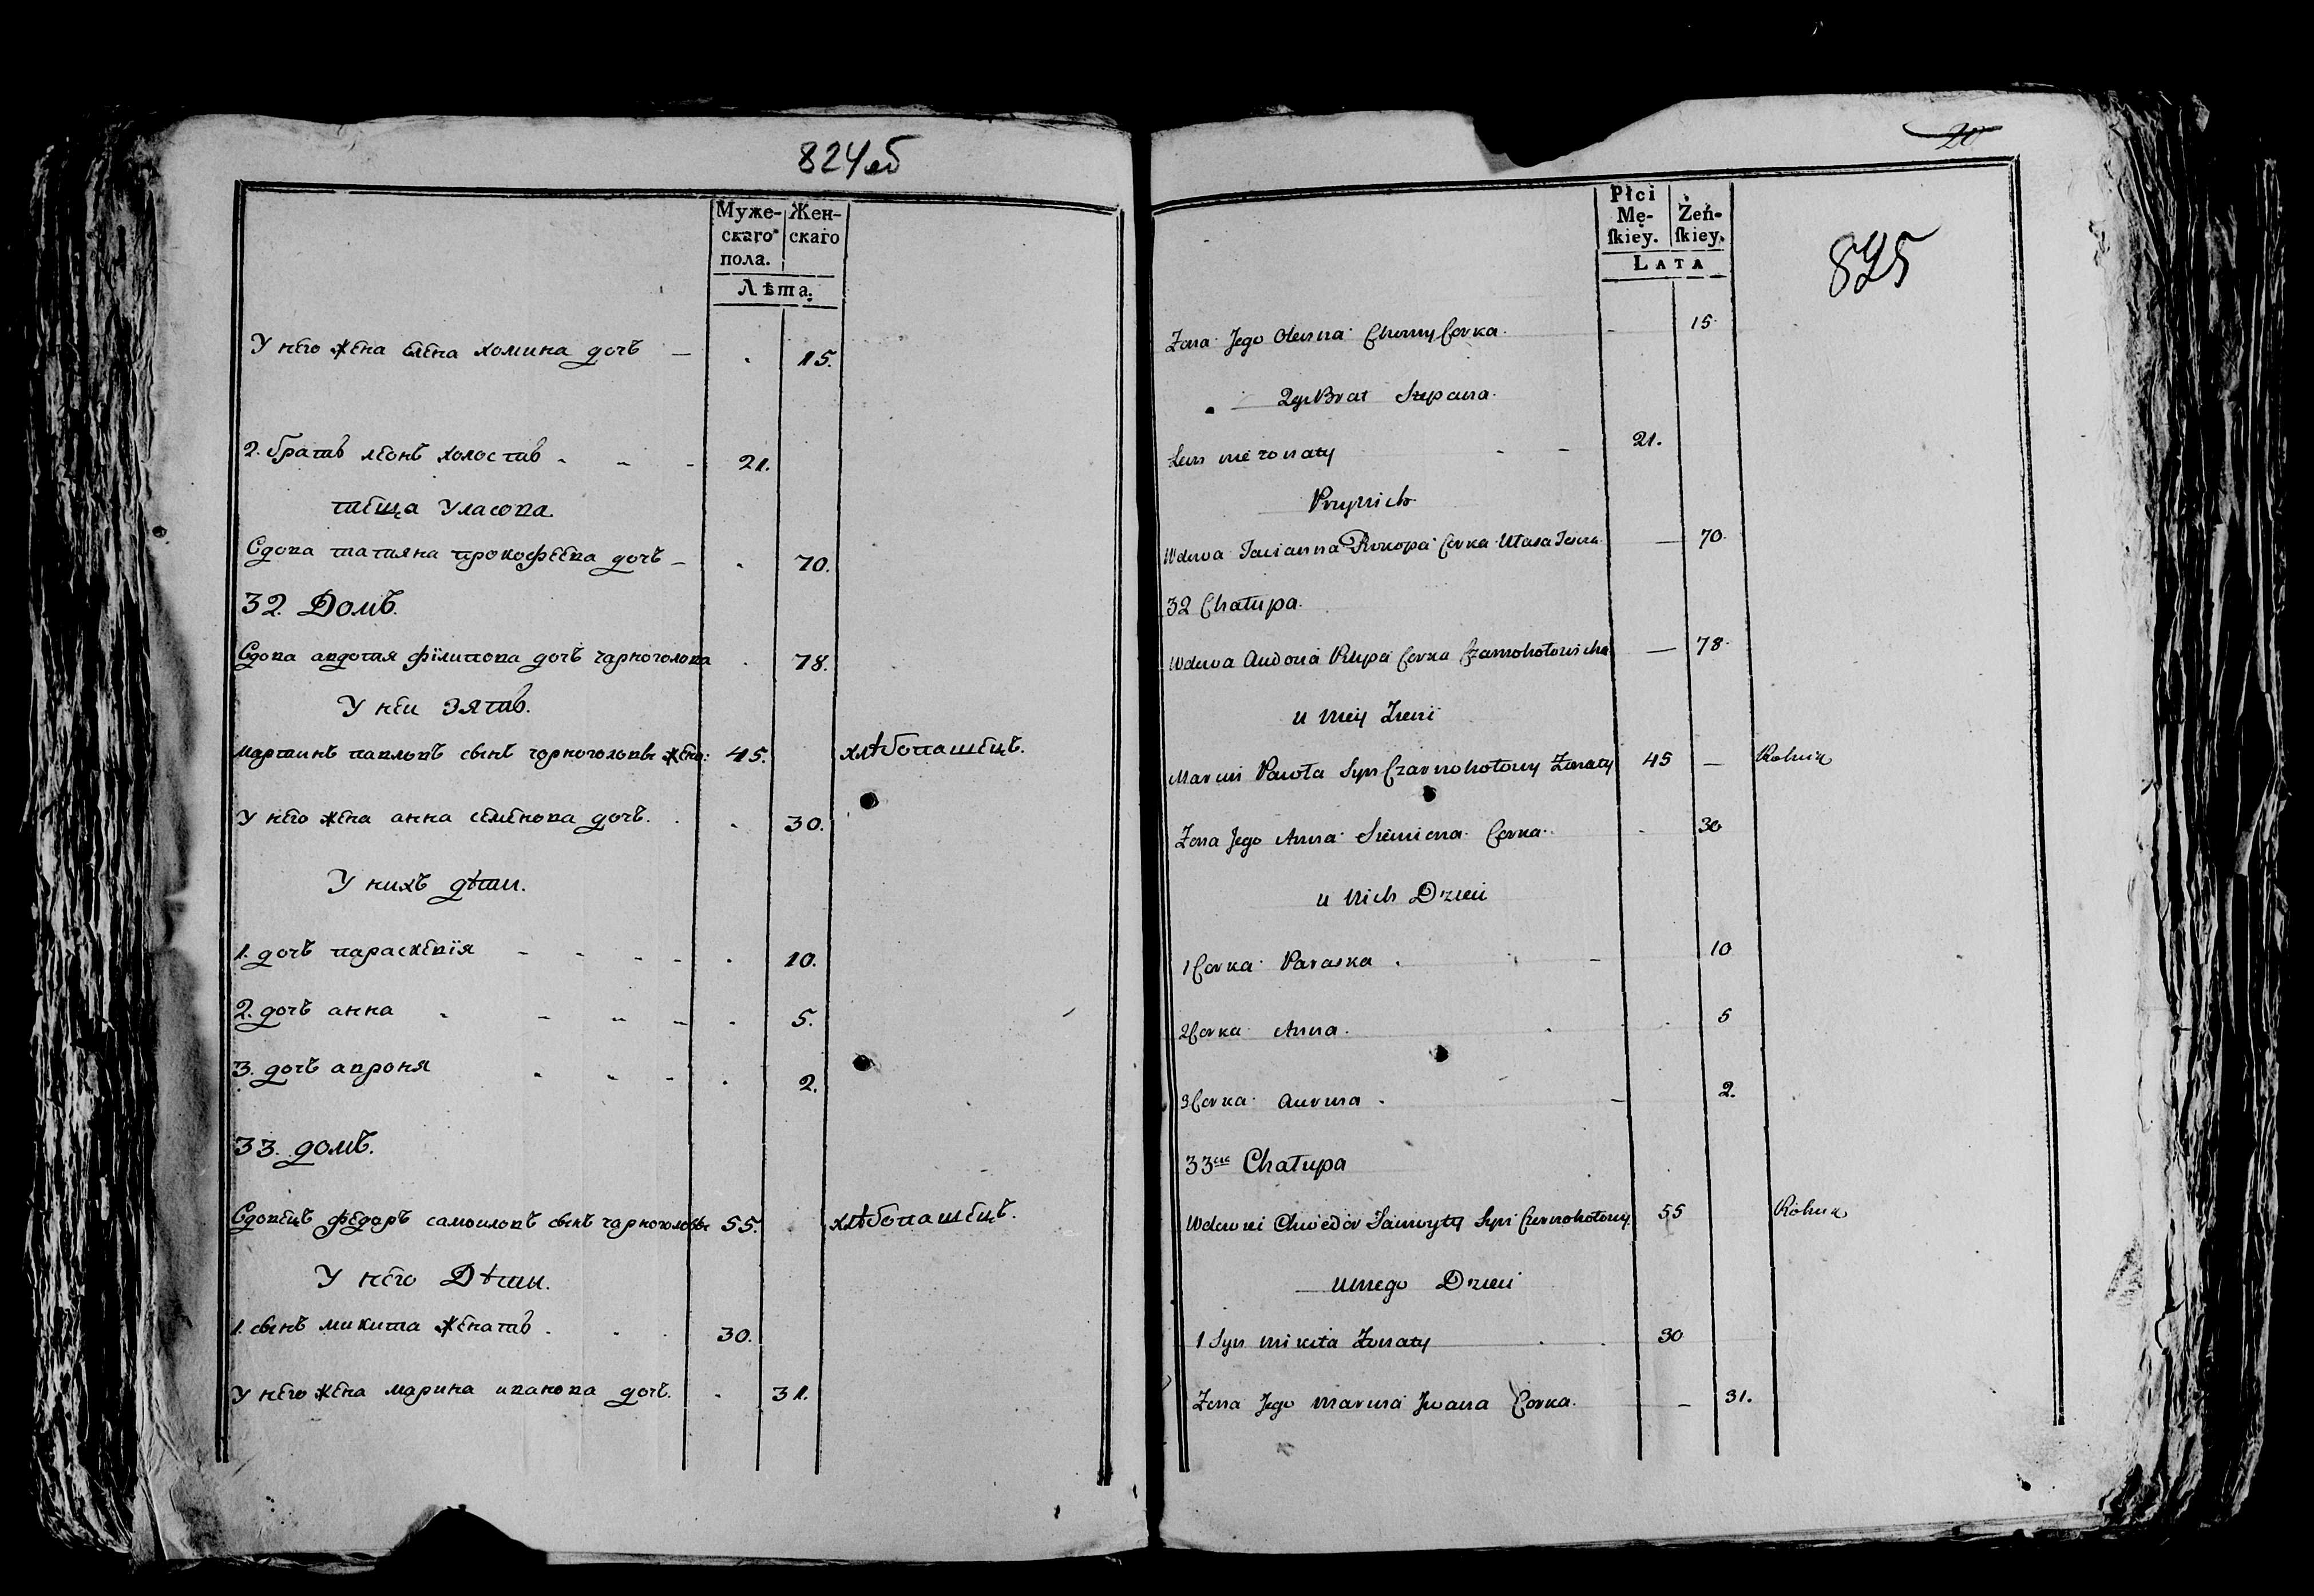 824об
Муже-
скаго
пола.
Жен-
скаго
Лѣта.
У него жена елена хомина дочь - . 15.
2. братъ леонъ холостъ . - - 21.
теща Уласова
Вдова татяна прокофеева дочь - . 70.
32. Домъ.
Вдова авдотя филипова дочь чарноголова . 78.
У неи Зять.
мартинъ павловъ сынъ чорноголовы жено: 45. хлѣбопашецъ.
У него жена анна семенова дочь. . . 30.
У нихъ дѣти.
1. дочъ параскевїя - - - - . 10.
2. дочъ анна . - - - . 5.
3. дочъ апроня . . - . 2.
33. домъ.
Вдовецъ федоръ самоиловъ сынъ чарноголовы 55. хлѣбопашецъ.
У него Дѣти.
1. сынъ микита женатъ . . . 30.
У него жена марина иванова дочъ. . 31.
20
Płci
Mę-
ſkiey.
Żeń-
ſkiey.
Lata
825
Zona Jego Olenna Chomy Corka. - 15
2gi Brat Stepana.
Leus nie zonaty - - 21.
Przy nich
Wdowa Tacianna Prokopa Corka Ułasa Tescia — 70.
32 Chałupa.
Wdowa Audotia Pilipa Corka Czarnohołowicha — 78.
u niey Zieni
Marcin Pawła Syn Czarnohołowy Zonaty 45 — Rolnik
Zona Jego Anna Siemiena Corka. . 30
u nich Dzieci
1 Corka Paraska . - 10
2 Corka Anna. . . 5
3 Corka Aurina . - 2.
33cia Chałupa
Wdowiec Chwedor Samoyły Syn Czernohołowy 55 Rolnik
u niego Dzieci
1 Syn Mikita Zonaty . . 30
Zona Jego Marina Jwana Corka. - 31.